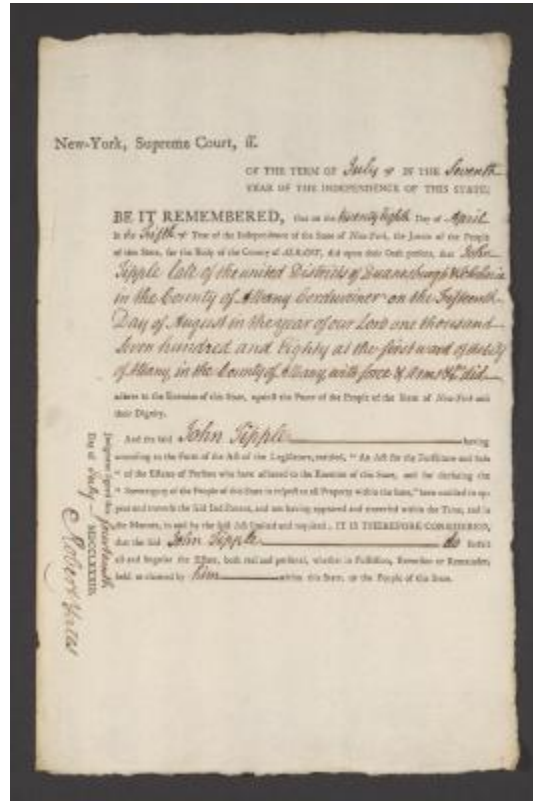 New-York, Supreme Court, ſſ.
OF THE TERM OF July IN THE Seventh
YEAR OF THE INDEPENDENCE OF THIS STATE;
BE IT REMEMBERED, that on the twenty Eighth Day of April
in the Fifth Year of the Independence of the State of New-York, the Jurors of the People
of this State, for the Body of the County of ALBANY, did upon their Oath present, that John
Tipple late of the united Districts of Duanesburgh & Schoharie
in the County of Albany Cordwainer on the Fifteenth
Day of August in the year of our Lord one thousand
seven hundred and Eighty at the first ward of the City
of Albany, in the County of Albany, with force & Arms &c. did
adhere to the Enemies of this State, against the Peace of the People of the State of New-York and
their Dignity.
And the said John Tipple having
according to the Form of the Act of the Legislature, entitled, "An Act for the Forfeiture and Sale
" of the Estates of Persons who have adhered to the Enemies of this State, and for declaring the
" Sovereignty of the People of this State in respect to all Property within the same," been notified to ap-
pear and traverse the said Indictment, and not having appeared and traversed within the Time, and in
the Manner, in and by the said Act limited and required; IT IS THEREFORE CONSIDERED,
that the said John Tipple do forfeit
all and singular the Estate, both real and personal, whether in Possession, Reversion or Remainder,
held or claimed by him within this State, to the People of this State.
Judgment signed this fourteenth
Day of July MDCCLXXXIII.
Robert Yates